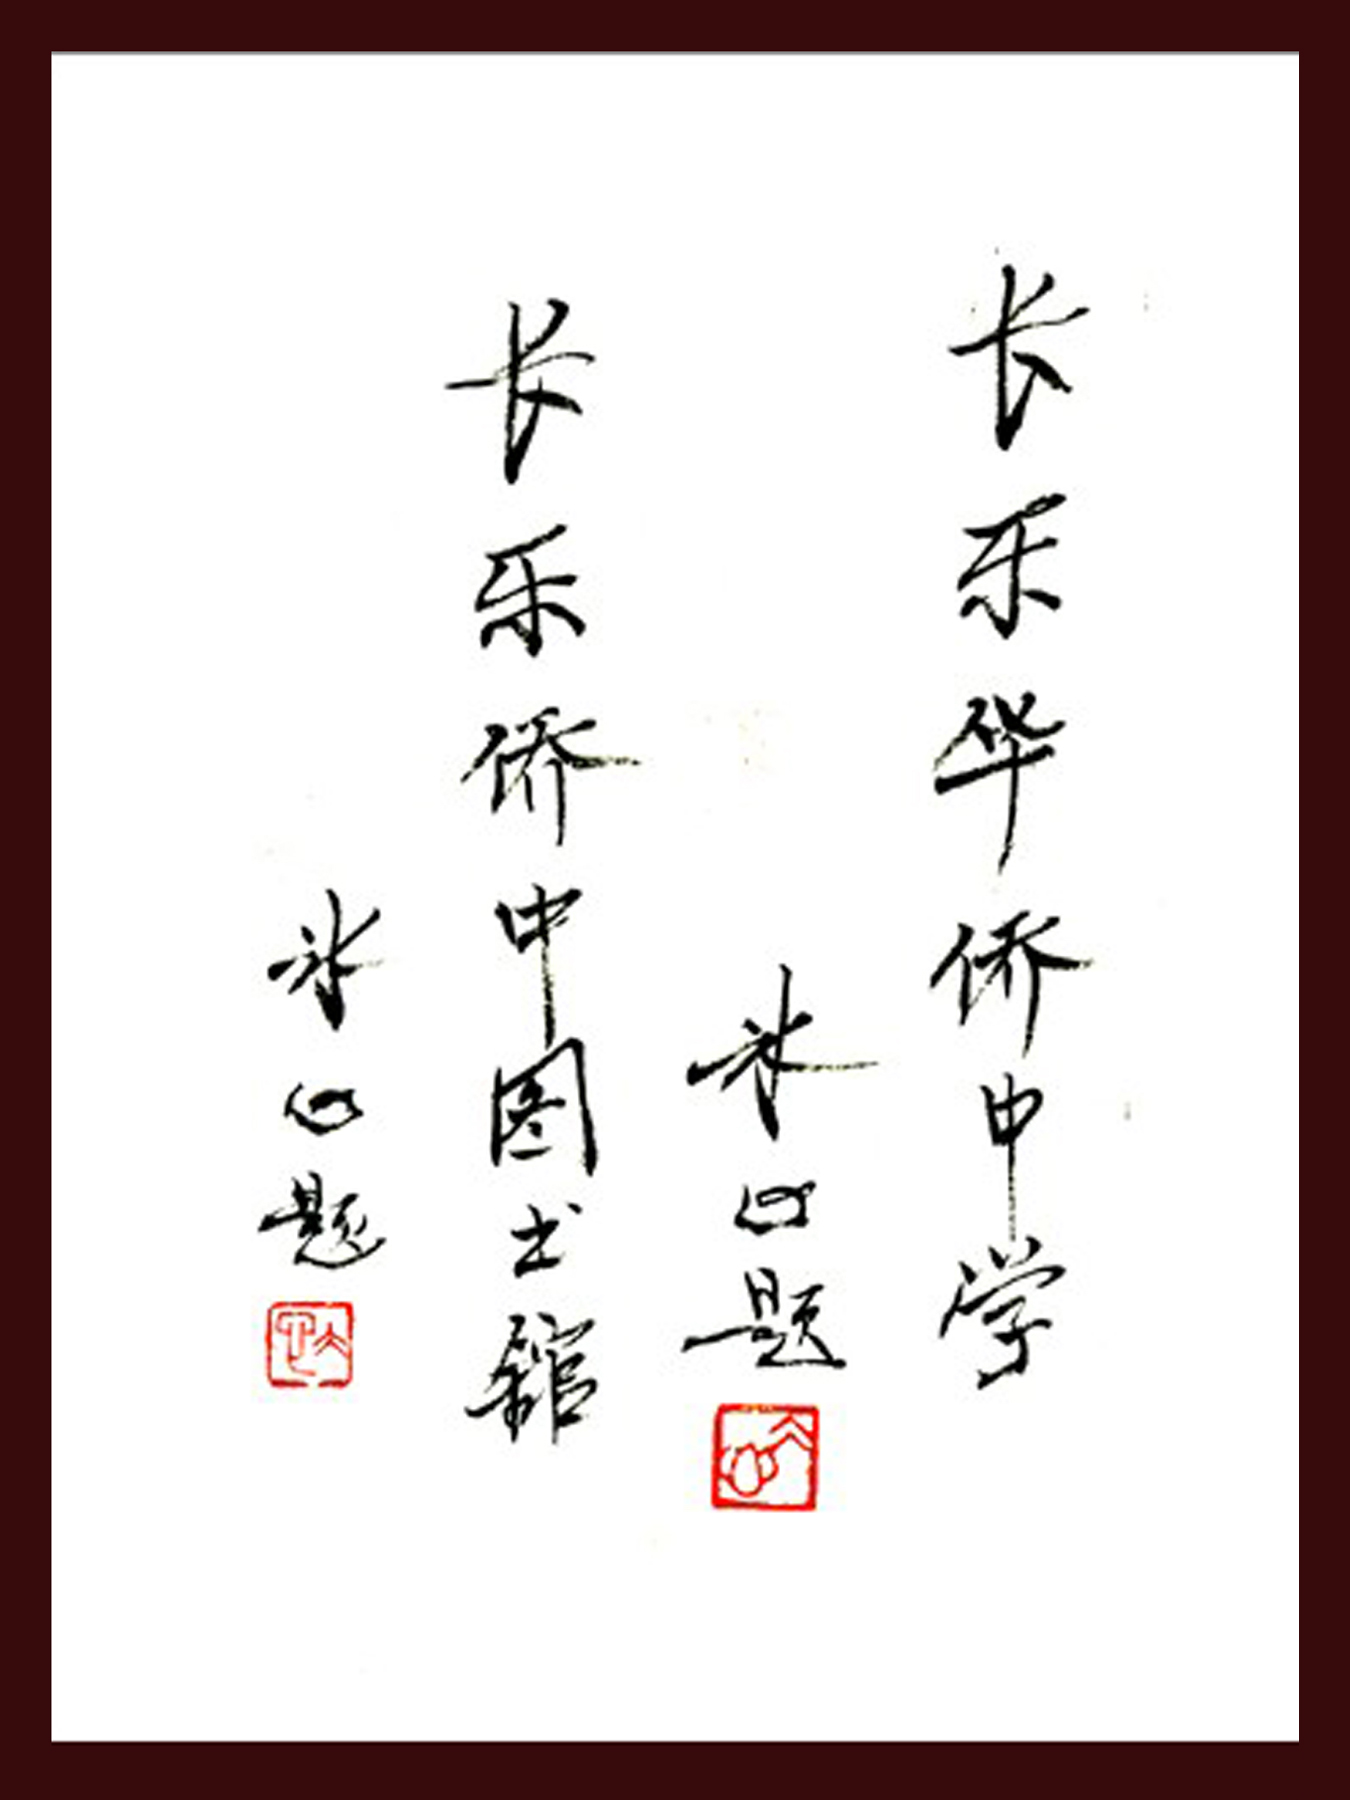 长乐华侨中学
冰心题
长乐侨中图书馆
冰心题
冰心